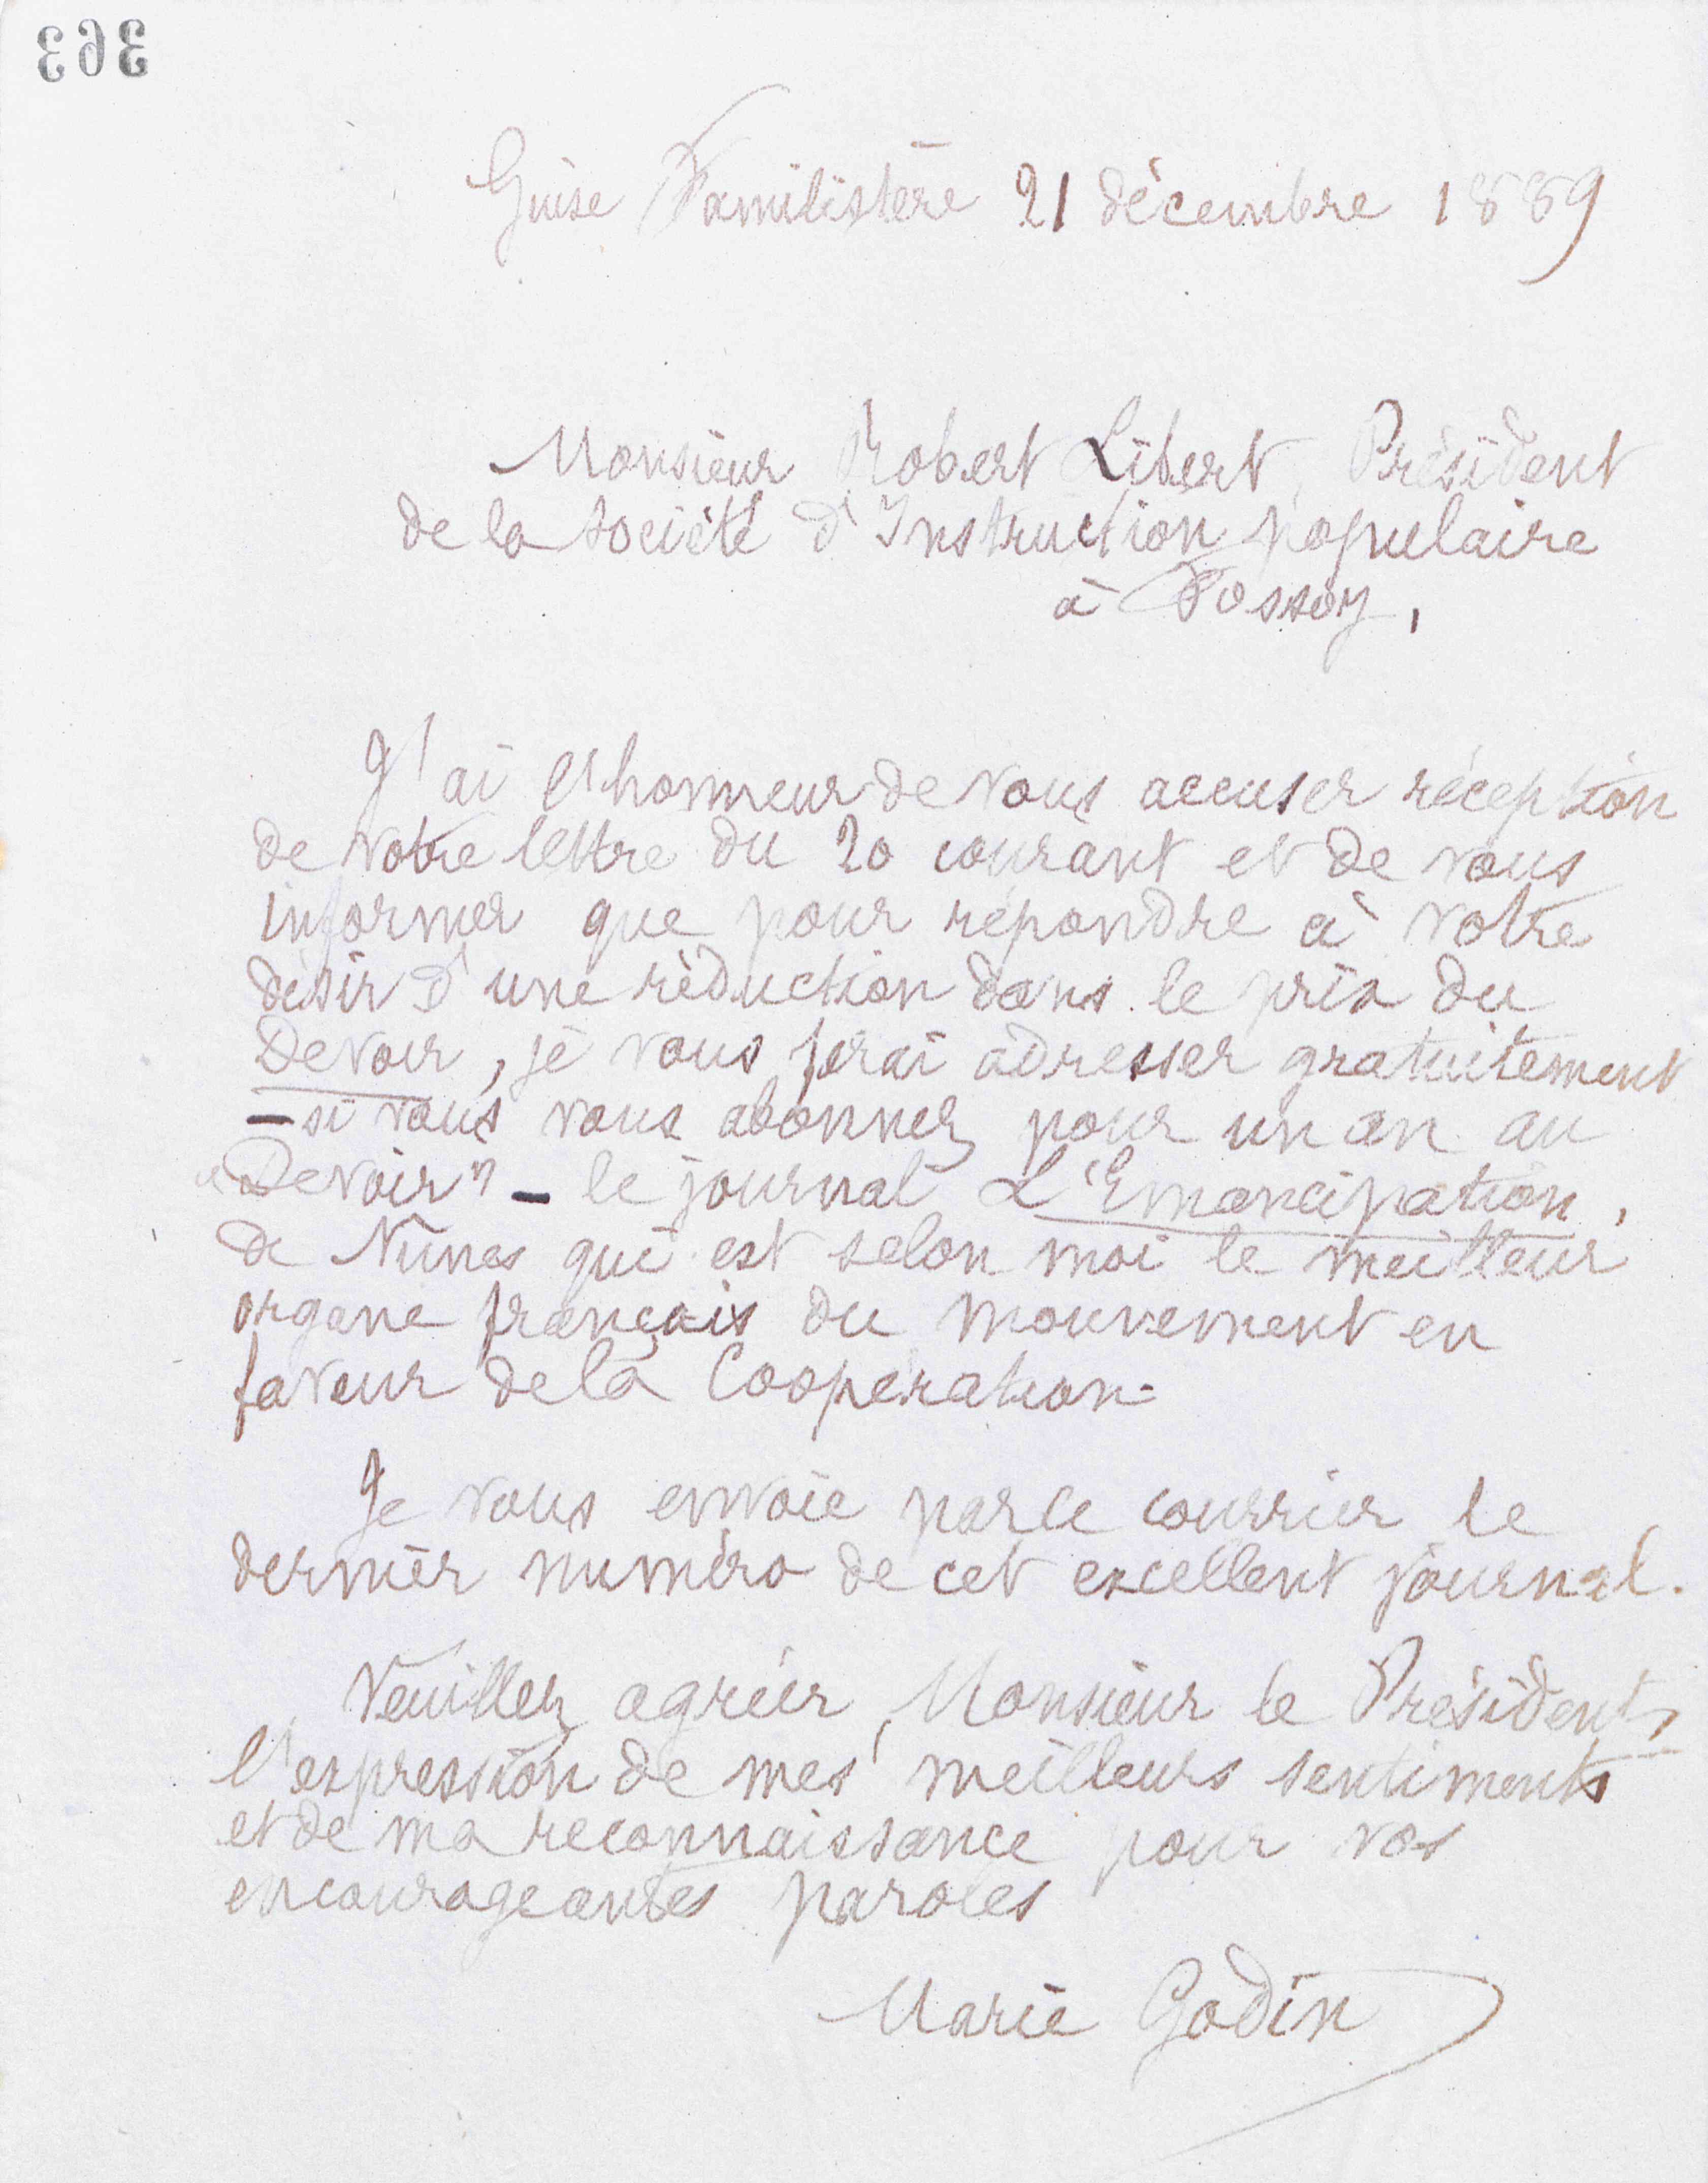 363
Guise Familistère 21 décembre 1889
Monsieur Robert Libert, Président
de la société d'Instruction populaire
à Fossoy,
J'ai l'honneur de vous accuser réception
de votre lettre du 20 courant et de vous
informer que pour répondre à votre
désir d'une réduction dans le prix du
Devoir, je vous ferai adresser gratuitement
— si vous vous abonnez pour un an au
"Devoir" — le journal L'Emancipation,
de Nîmes qui est selon moi le meilleur
organe français du mouvement en
faveur de la Coopération.
Je vous envoie par le courrier le
dernier numéro de cet excellent journal.
Veuillez agréer, Monsieur le Président,
l'expression de mes meilleurs sentiments
et de ma reconnaissance pour vos
encourageantes paroles
Marie Godin